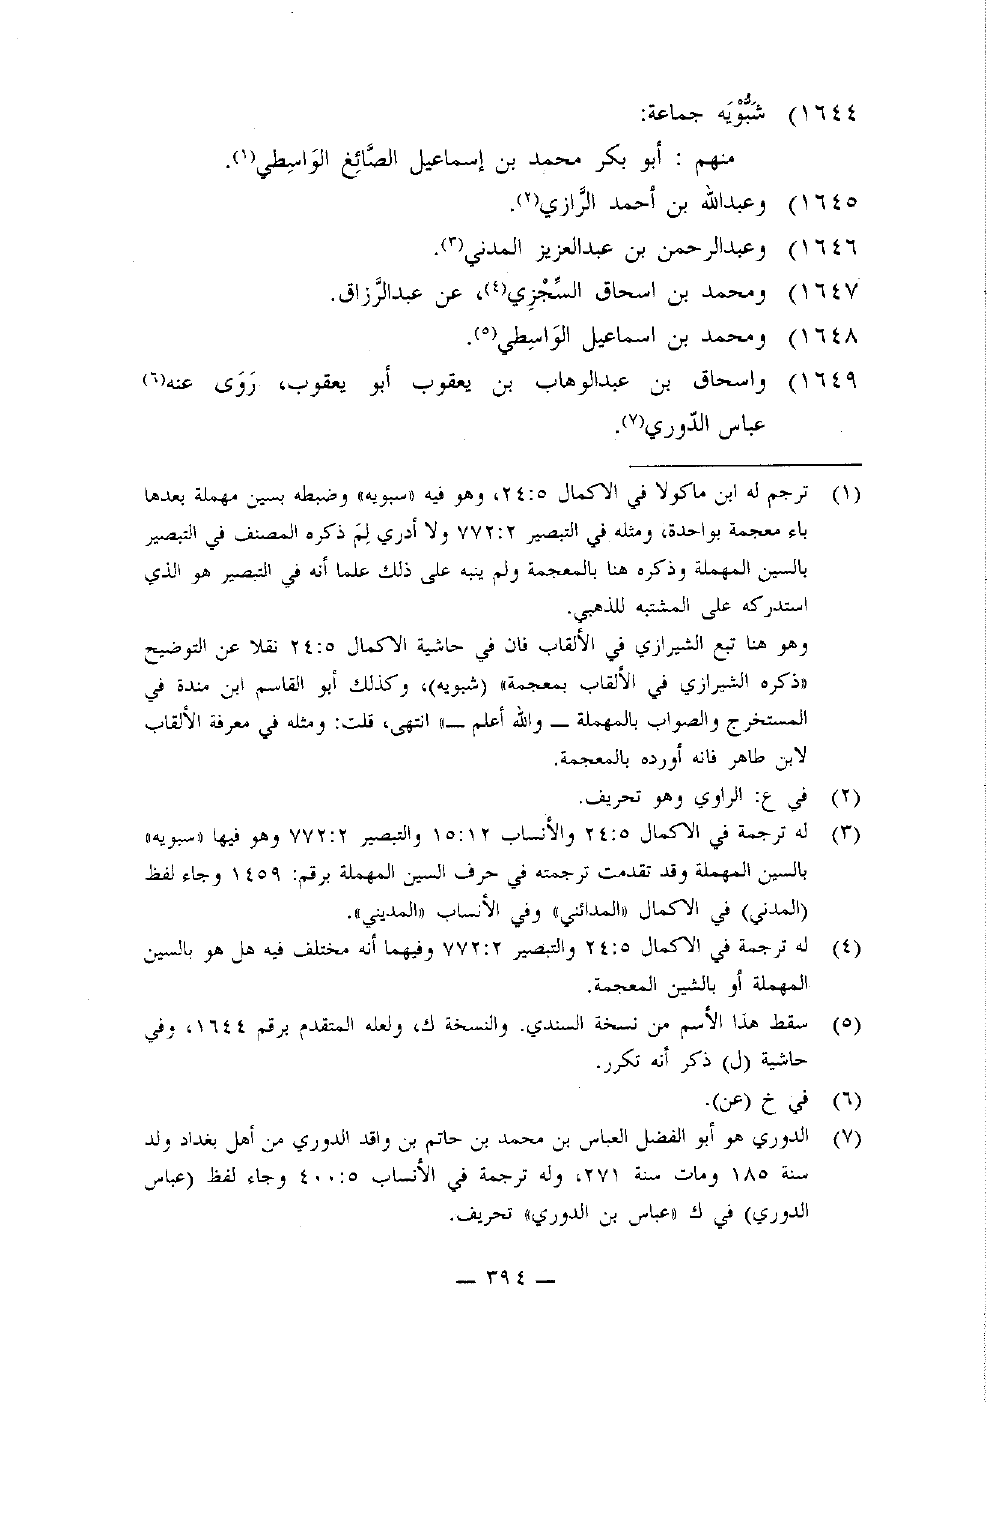 ١٦٤٤) شَبُّوْيَه جماعة:
منهم : أبو بكر محمد بن إسماعيل الصَّائِغ الوَاسِطي(١).
١٦٤٥) وعبدالله بن أحمد الرَّازي(٢).
١٦٤٦) وعبدالرحمن بن عبدالعزيز المدني(٣).
١٦٤٧) ومحمد بن اسحاق السِّجْزِي(٤)، عن عبدالرَّزاق.
١٦٤٨) ومحمد بن اسماعيل الوَاسِطي(٥).
١٦٤٩) واسحاق بن عبدالوهاب بن يعقوب أبو يعقوب، رَوَى عنه(٦)
عباس الدّوري(٧).
(١) ترجم له ابن ماكولا في الاكمال ٢٤:٥، وهو فيه «سبويه» وضبطه بسين مهملة بعدها
باء معجمة بواحدة، ومثله في التبصير ٧٧٢:٢ ولا أدري لِمَ ذكره المصنف في التبصير
بالسين المهملة وذكره هنا بالمعجمة ولم ينبه على ذلك علما أنه في التبصير هو الذي
استدركه على المشتبه للذهبي.
وهو هنا تبع الشيرازي في الألقاب فان في حاشية الاكمال ٢٤:٥ نقلا عن التوضيح
«ذكره الشيرازي في الألقاب بمعجمة» (شبويه)، وكذلك أبو القاسم ابن مندة في
المستخرج والصواب بالمهملة ــ والله أعلم ــ» انتهى، قلت: ومثله في معرفة الألقاب
لابن طاهر فانه أورده بالمعجمة.
(٢) في ع: الراوي وهو تحريف.
(٣) له ترجمة في الاكمال ٢٤:٥ والأنساب ١٥:١٢ والتبصير ٧٧٢:٢ وهو فيها «سبويه»
بالسين المهملة وقد تقدمت ترجمته في حرف السين المهملة برقم: ١٤٥٩ وجاء لفظ
(المدني) في الاكمال «المدائني» وفي الأنساب «المديني».
(٤) له ترجمة في الاكمال ٢٤:٥ والتبصير ٧٧٢:٢ وفيهما أنه مختلف فيه هل هو بالسين
المهملة أو بالشين المعجمة.
(٥) سقط هذا الأسم من نسخة السندي. والنسخة ك، ولعله المتقدم برقم ١٦٤٤، وفي
حاشية (ل) ذكر أنه تكرر.
(٦) في خ (عن).
(٧) الدوري هو أبو الفضل العباس بن محمد بن حاتم بن واقد الدوري من أهل بغداد ولد
سنة ١٨٥ ومات سنة ٢٧١، وله ترجمة في الأنساب ٤٠٠:٥ وجاء لفظ (عباس
الدوري) في ك «عباس بن الدوري» تحريف.
ــ ٣٩٤ ــ